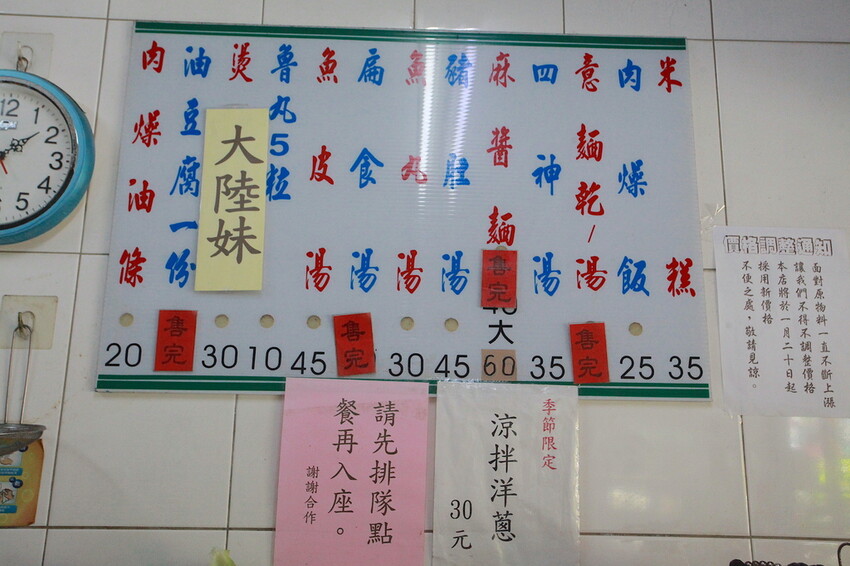 米糕
35
肉燥飯
25
意麵乾/湯
售完
四神湯
35
麻醬麵
售完
大
60
豬肚湯
45
魚丸湯
30
扁食湯
售完
魚皮湯
45
魯丸5粒
10
燙
大陸妹
30
油豆腐一份
售完
肉燥油條
20
價格調整通知
面對原物料一直不斷上漲
讓我們不得不調整價格
本店將於一月二十日起
採用新價格
不便之處,敬請見諒。
季節限定
涼拌洋蔥
30元
請先排隊點
餐再入座。
謝謝合作
12
1
2
3
4
5